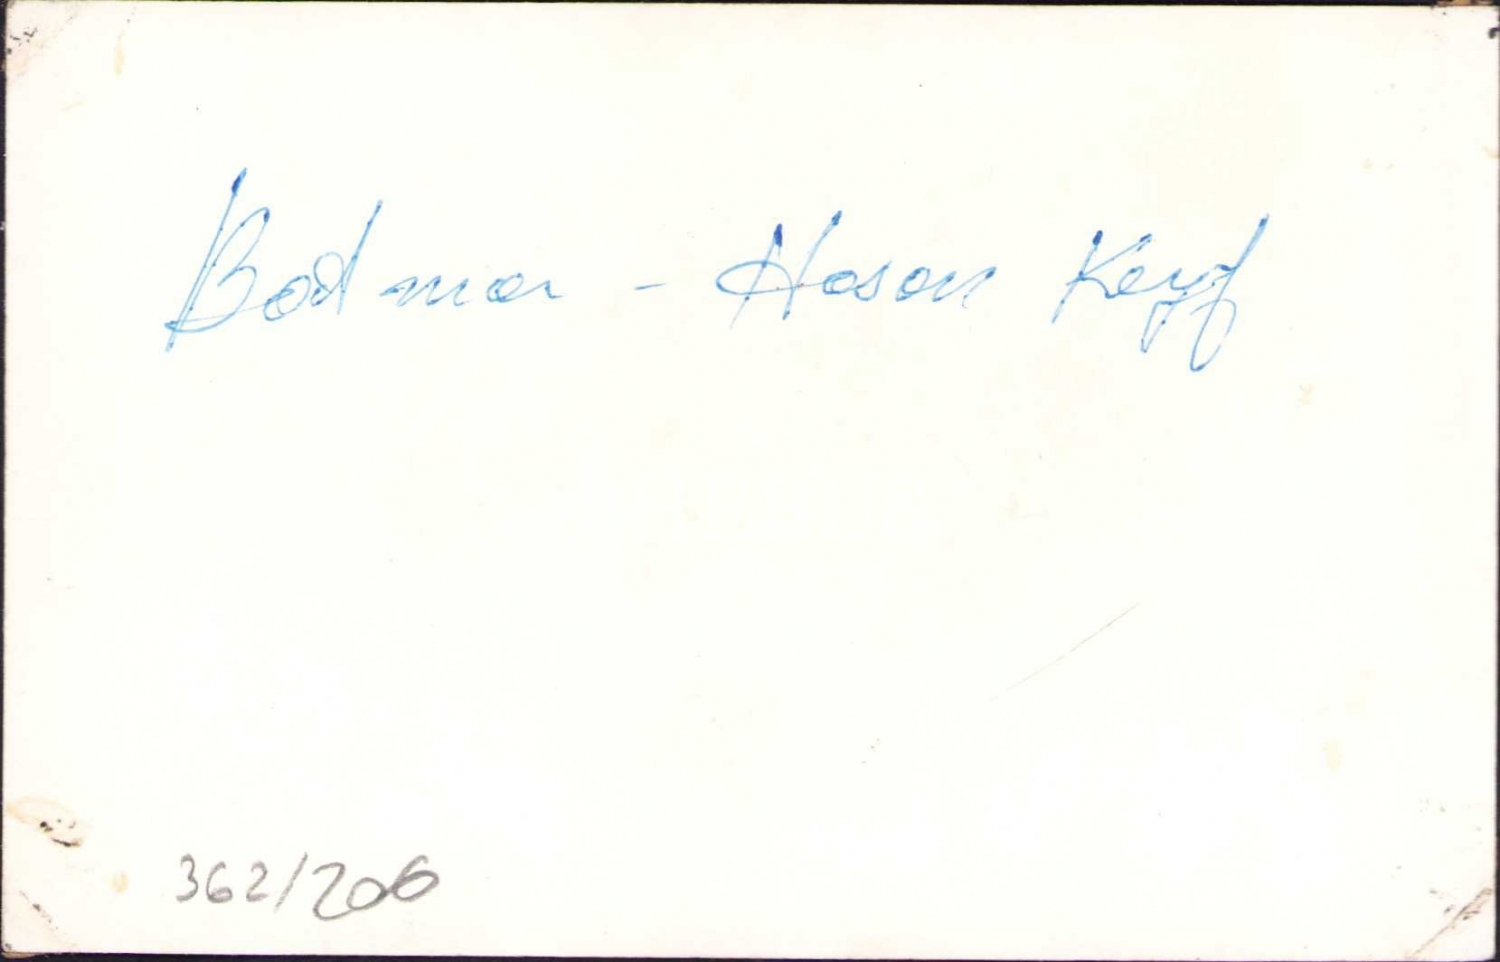 Batman - Hasan Keyf
362/206